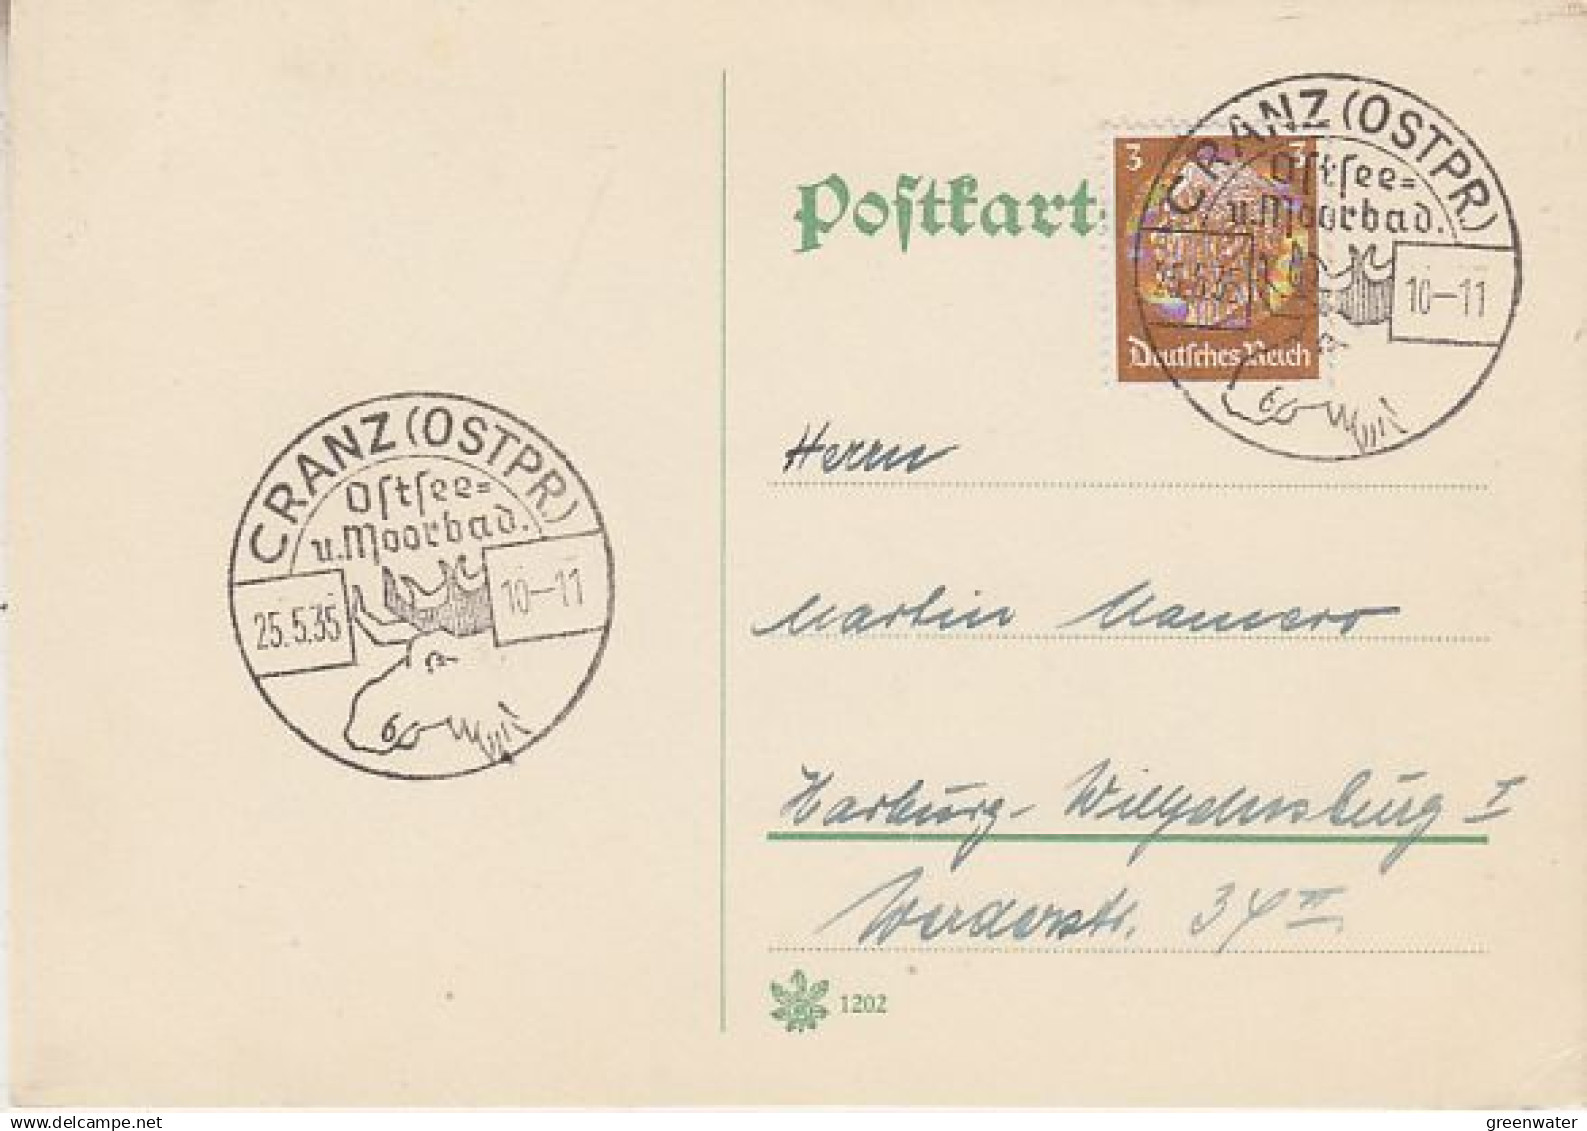 Postkart
3 3
Deutsches Reich
CRANZ (OSTPR)
Ostsee=
u. Moorbad.
25.5.35 10-11
CRANZ (OSTPR)
Ostsee=
u. Moorbad.
25.5.35 10-11
Herrn
Martin
Harburg-Wilhelmsburg I
Werderstr. 34 II
1202
greenwater